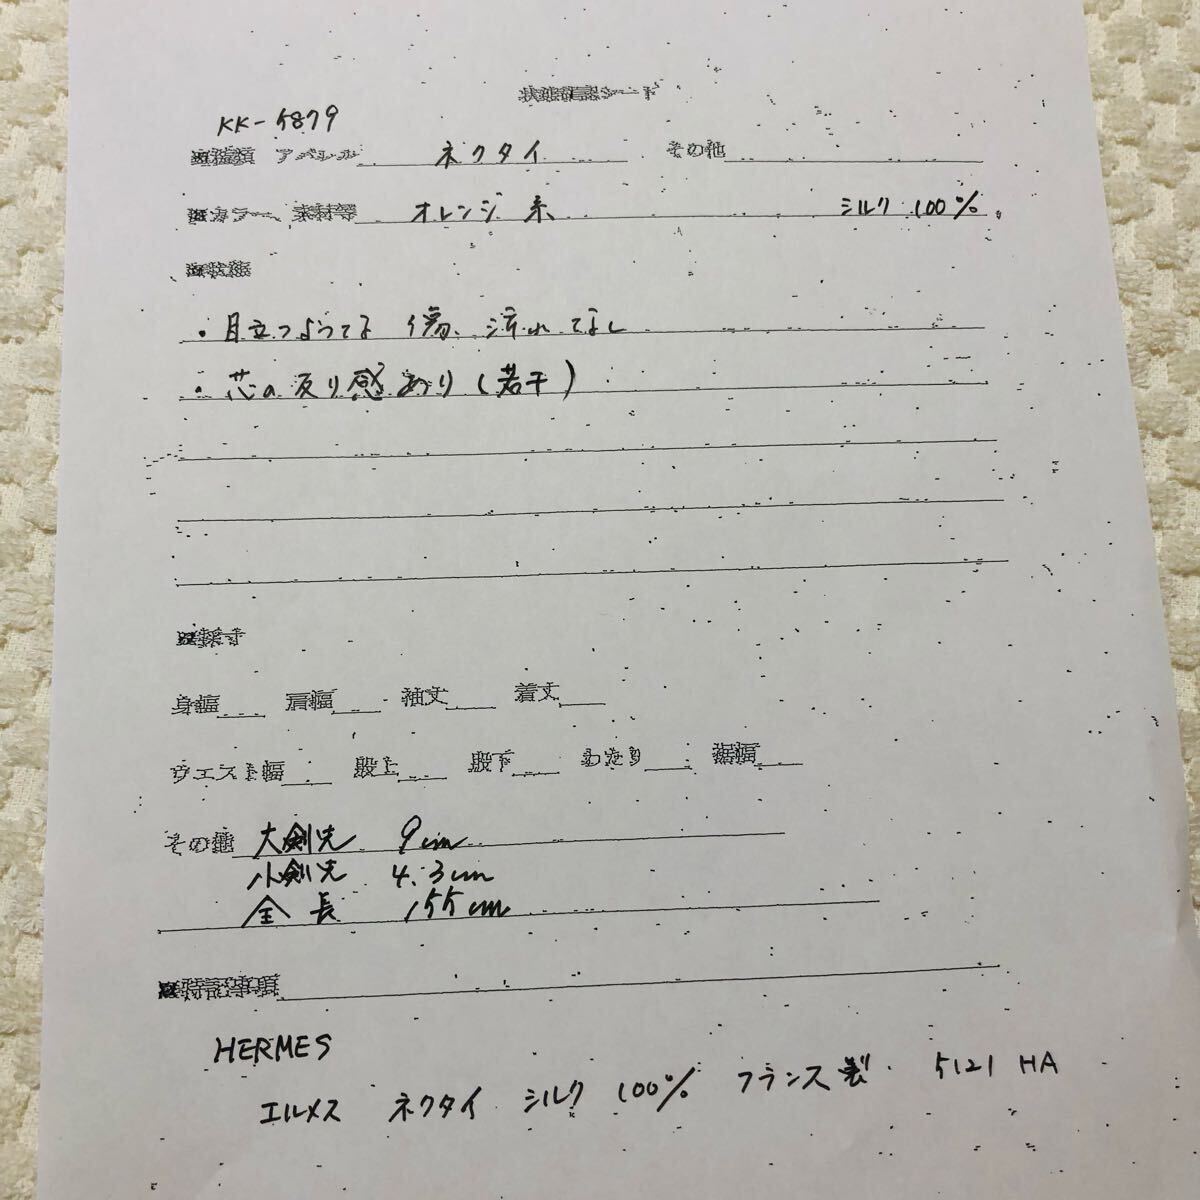 状態確認シート
KK-5879
■種類 アパレル ネクタイ その他
■カラー、素材等 オレンジ系 シルク 100%
■状態
・目立つようなる 傷、汚れ てなし
・芯の反り感あり(若干)
■採寸
身幅 肩幅 袖丈 着丈
ウエスト幅 股上 股下 わたり 裾幅
その他 大剣先 9cm
小剣先 4.3cm
全長 155cm
■特記事項
HERMES
エルメス ネクタイ シルク 100% フランス製. 5121 HA